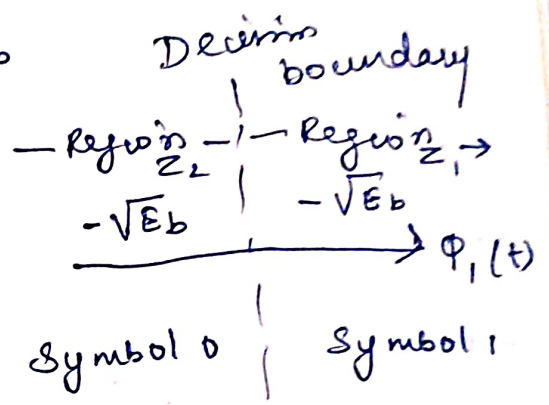 Decision
boundary
— Region Z₂ — — Region Z₁ →
-√Eb - √Eb
φ₁(t)
Symbol 0 Symbol 1